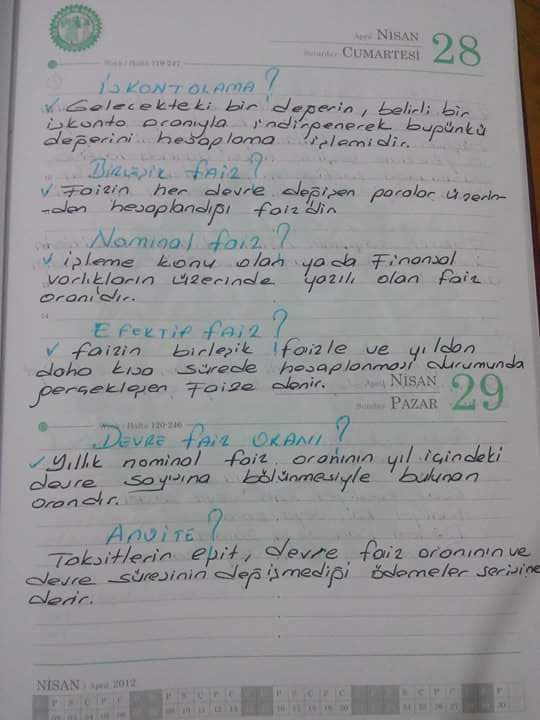 April NİSAN
Saturday CUMARTESİ 28
Week / Hafta 119-247
İSKONTOLAMA ?
✓ Gelecekteki bir değerin, belirli bir
iskonto oranıyla indirgenerek bugünkü
değerini hesaplama işlemidir.
Birleşik faiz ?
✓ Faizin her devre değişen paralar üzerin-
-den hesaplandığı faizdir
Nominal faiz ?
✓ işleme konu olan yada Finansal
varlıkların üzerinde yazılı olan faiz
oranıdır.
14
Efektif faiz ?
✓ faizin birleşik faizle ve yıldan
daha kısa sürede hesaplanması durumunda
gerçekleşen Faize denir.
April NİSAN
Sunday PAZAR 29
Week / Hafta 120-246
DEVRE FAİZ ORANI ?
✓ Yıllık nominal faiz oranının yıl içindeki
devre sayısına bölünmesiyle bulunan
orandır.
ANÜİTE ?
Taksitlerin eşit, devre faiz oranının ve
devre süresinin değişmediği ödemeler serisine
denir.
NİSAN / April 2012